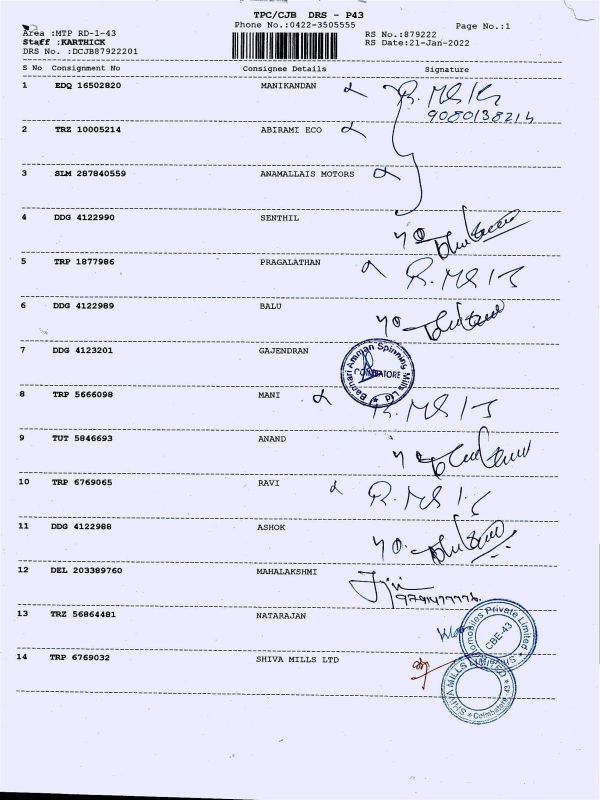 TPC/CJB DRS - P43
Phone No.:0422-3505555
Page No.:1
Area :MTP RD-1-43
RS No.:879222
Staff :KARTHICK
RS Date:21-Jan-2022
DRS No. :DCJB87922201
S No Consignment No Consignee Details Signature
1 EDQ 16502820 MANIKANDAN
2 TRZ 10005214 ABIRAMI ECO
3 SLM 287840559 ANAMALLAIS MOTORS
4 DDG 4122990 SENTHIL
5 TRP 1877986 PRAGALATHAN
6 DDG 4122989 BALU
7 DDG 4123201 GAJENDRAN
Bannari Amman Spinning Mills Ltd
COIMBATORE
8 TRP 5666098 MANI
9 TUT 5846693 ANAND
10 TRP 6769065 RAVI
11 DDG 4122988 ASHOK
12 DEL 203389760 MAHALAKSHMI
13 TRZ 56864481 NATARAJAN
Private Limited
CBE-43
14 TRP 6769032 SHIVA MILLS LTD
SHIVA MILLS LIMITED
Coimbatore